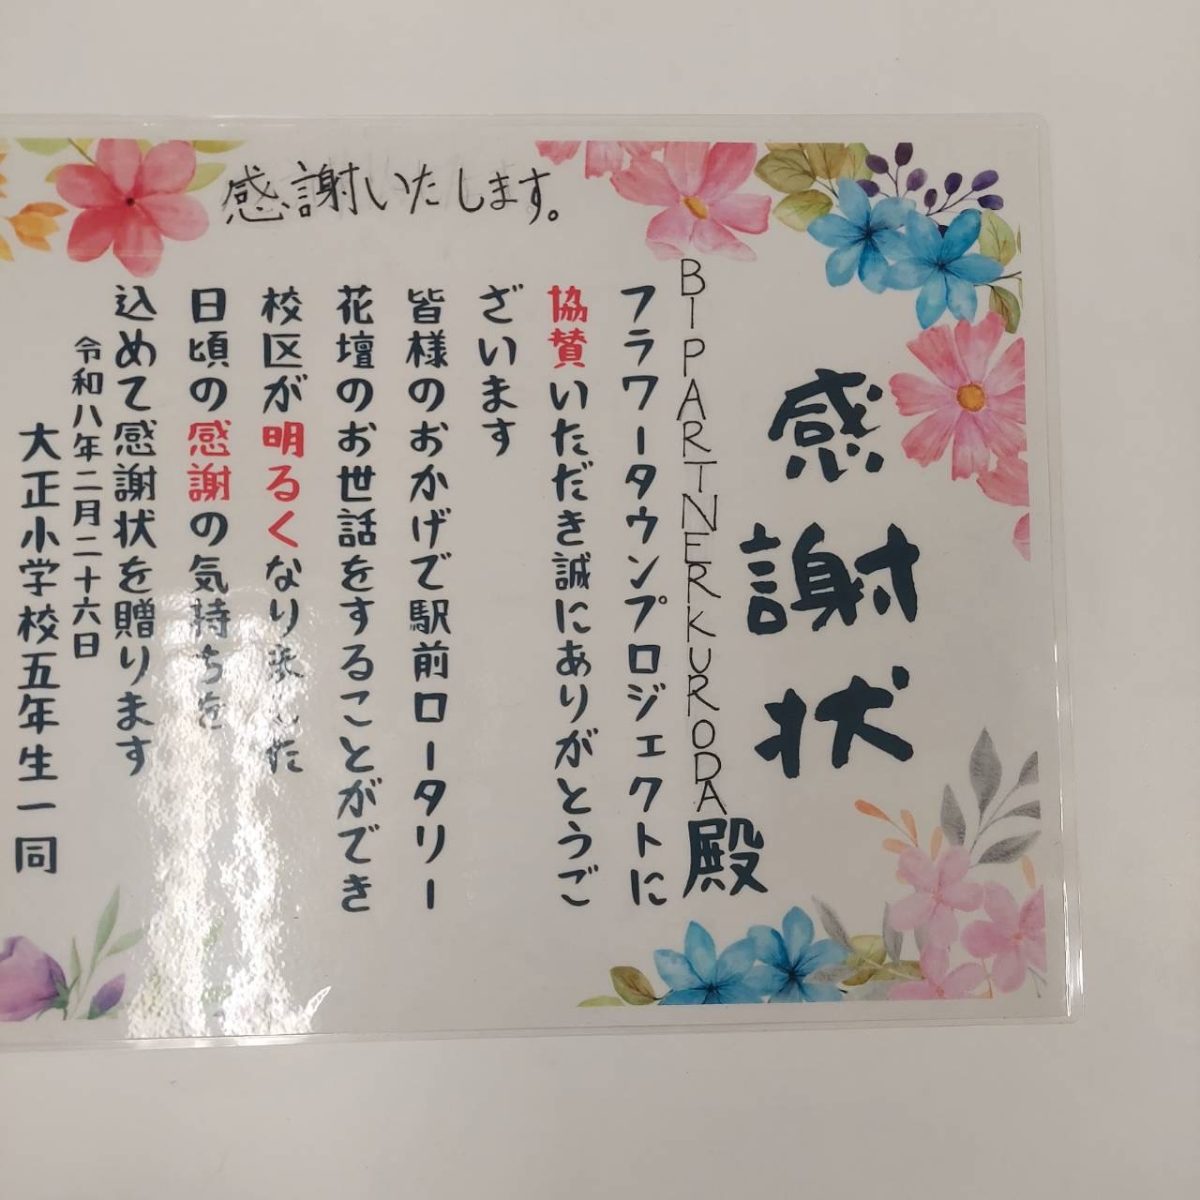 感謝いたします。
感謝状
BI PARTNERKURODA殿
フラワータウンプロジェクトに
協賛いただき誠にありがとうご
ざいます
皆様のおかげで駅前ロータリー
花壇のお世話をすることができ
校区が明るくなり来した
日頃の感謝の気持ちを
込めて感謝状を贈ります
令和八年二月二十六日
大正小学校五年生一同